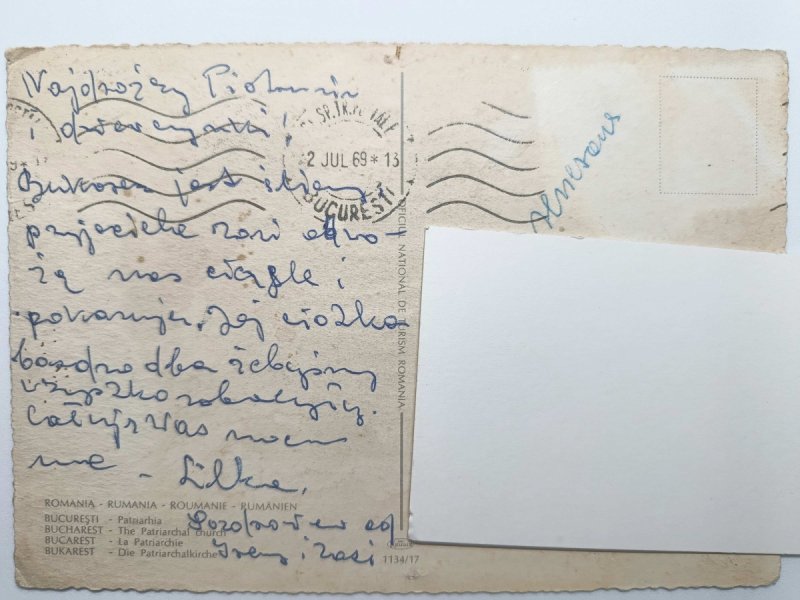 Najdroższy Piotrusiu
i dziewczynki!
Bukareszt jest
przyjaciele Zosi obwo-
żą nas ciągle i
pokazują. Jej ciotka
bardzo dba żebyśmy
wszystko zobaczyły.
Całuję Was mocno
- Lilka.
Pozdrowienia od
Ireny i Zosi
2 JUL 69 * 13
BUCUREȘTI
OFICIUL NATIONAL DE TURISM ROMANIA
ROMANIA - RUMANIA - ROUMANIE - RUMÄNIEN
BUCUREȘTI - Patriarhia
BUCHAREST - The Patriarchal church
BUCAREST - La Patriarchie
BUKAREST - Die Patriarchalkirche
1134/17